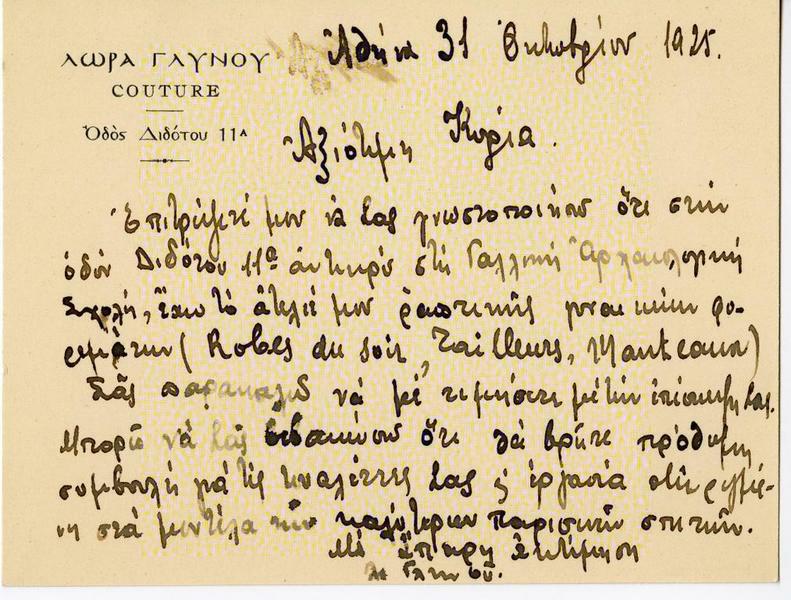 ΛΩΡΑ ΓΛΥΝΟΥ
COUTURE
Ὁδὸς Διδότου 11Α
Ἀθήνα 31 Ὀκτωβρίου 1925.
Ἀξιότιμη Κυρία.
Ἐπιτρέψετέ μου νὰ Σας γνωστοποιήσω ὅτι στὴν
ὁδὸν Διδότου 11α ἀντικρὺ στὴ Γαλλικὴ Ἀρχαιολογικὴ
Σχολή, ἔχω τὸ ἀτελιέ μου ῥαπτικῆς γυναικίων φο-
ρεμάτων (Robes du soir, Tailleurs, Manteaux)
Σᾶς παρακαλῶ νὰ μὲ τιμήσετε μὲ τὴν ἐπίσκεψη Σας.
Μπορῶ νὰ Σᾶς βεβαιώσω ὅτι θὰ βρῆτε πρόθυμη
συμβουλὴ γιὰ τὶς τουαλέττες Σας ἐργασία
στὰ μοντέλα τῶν καλύτερων παρισινῶν σπιτιῶν.
Μὲ ἄπειρη ἐκτίμηση
Λ. Γληνού.